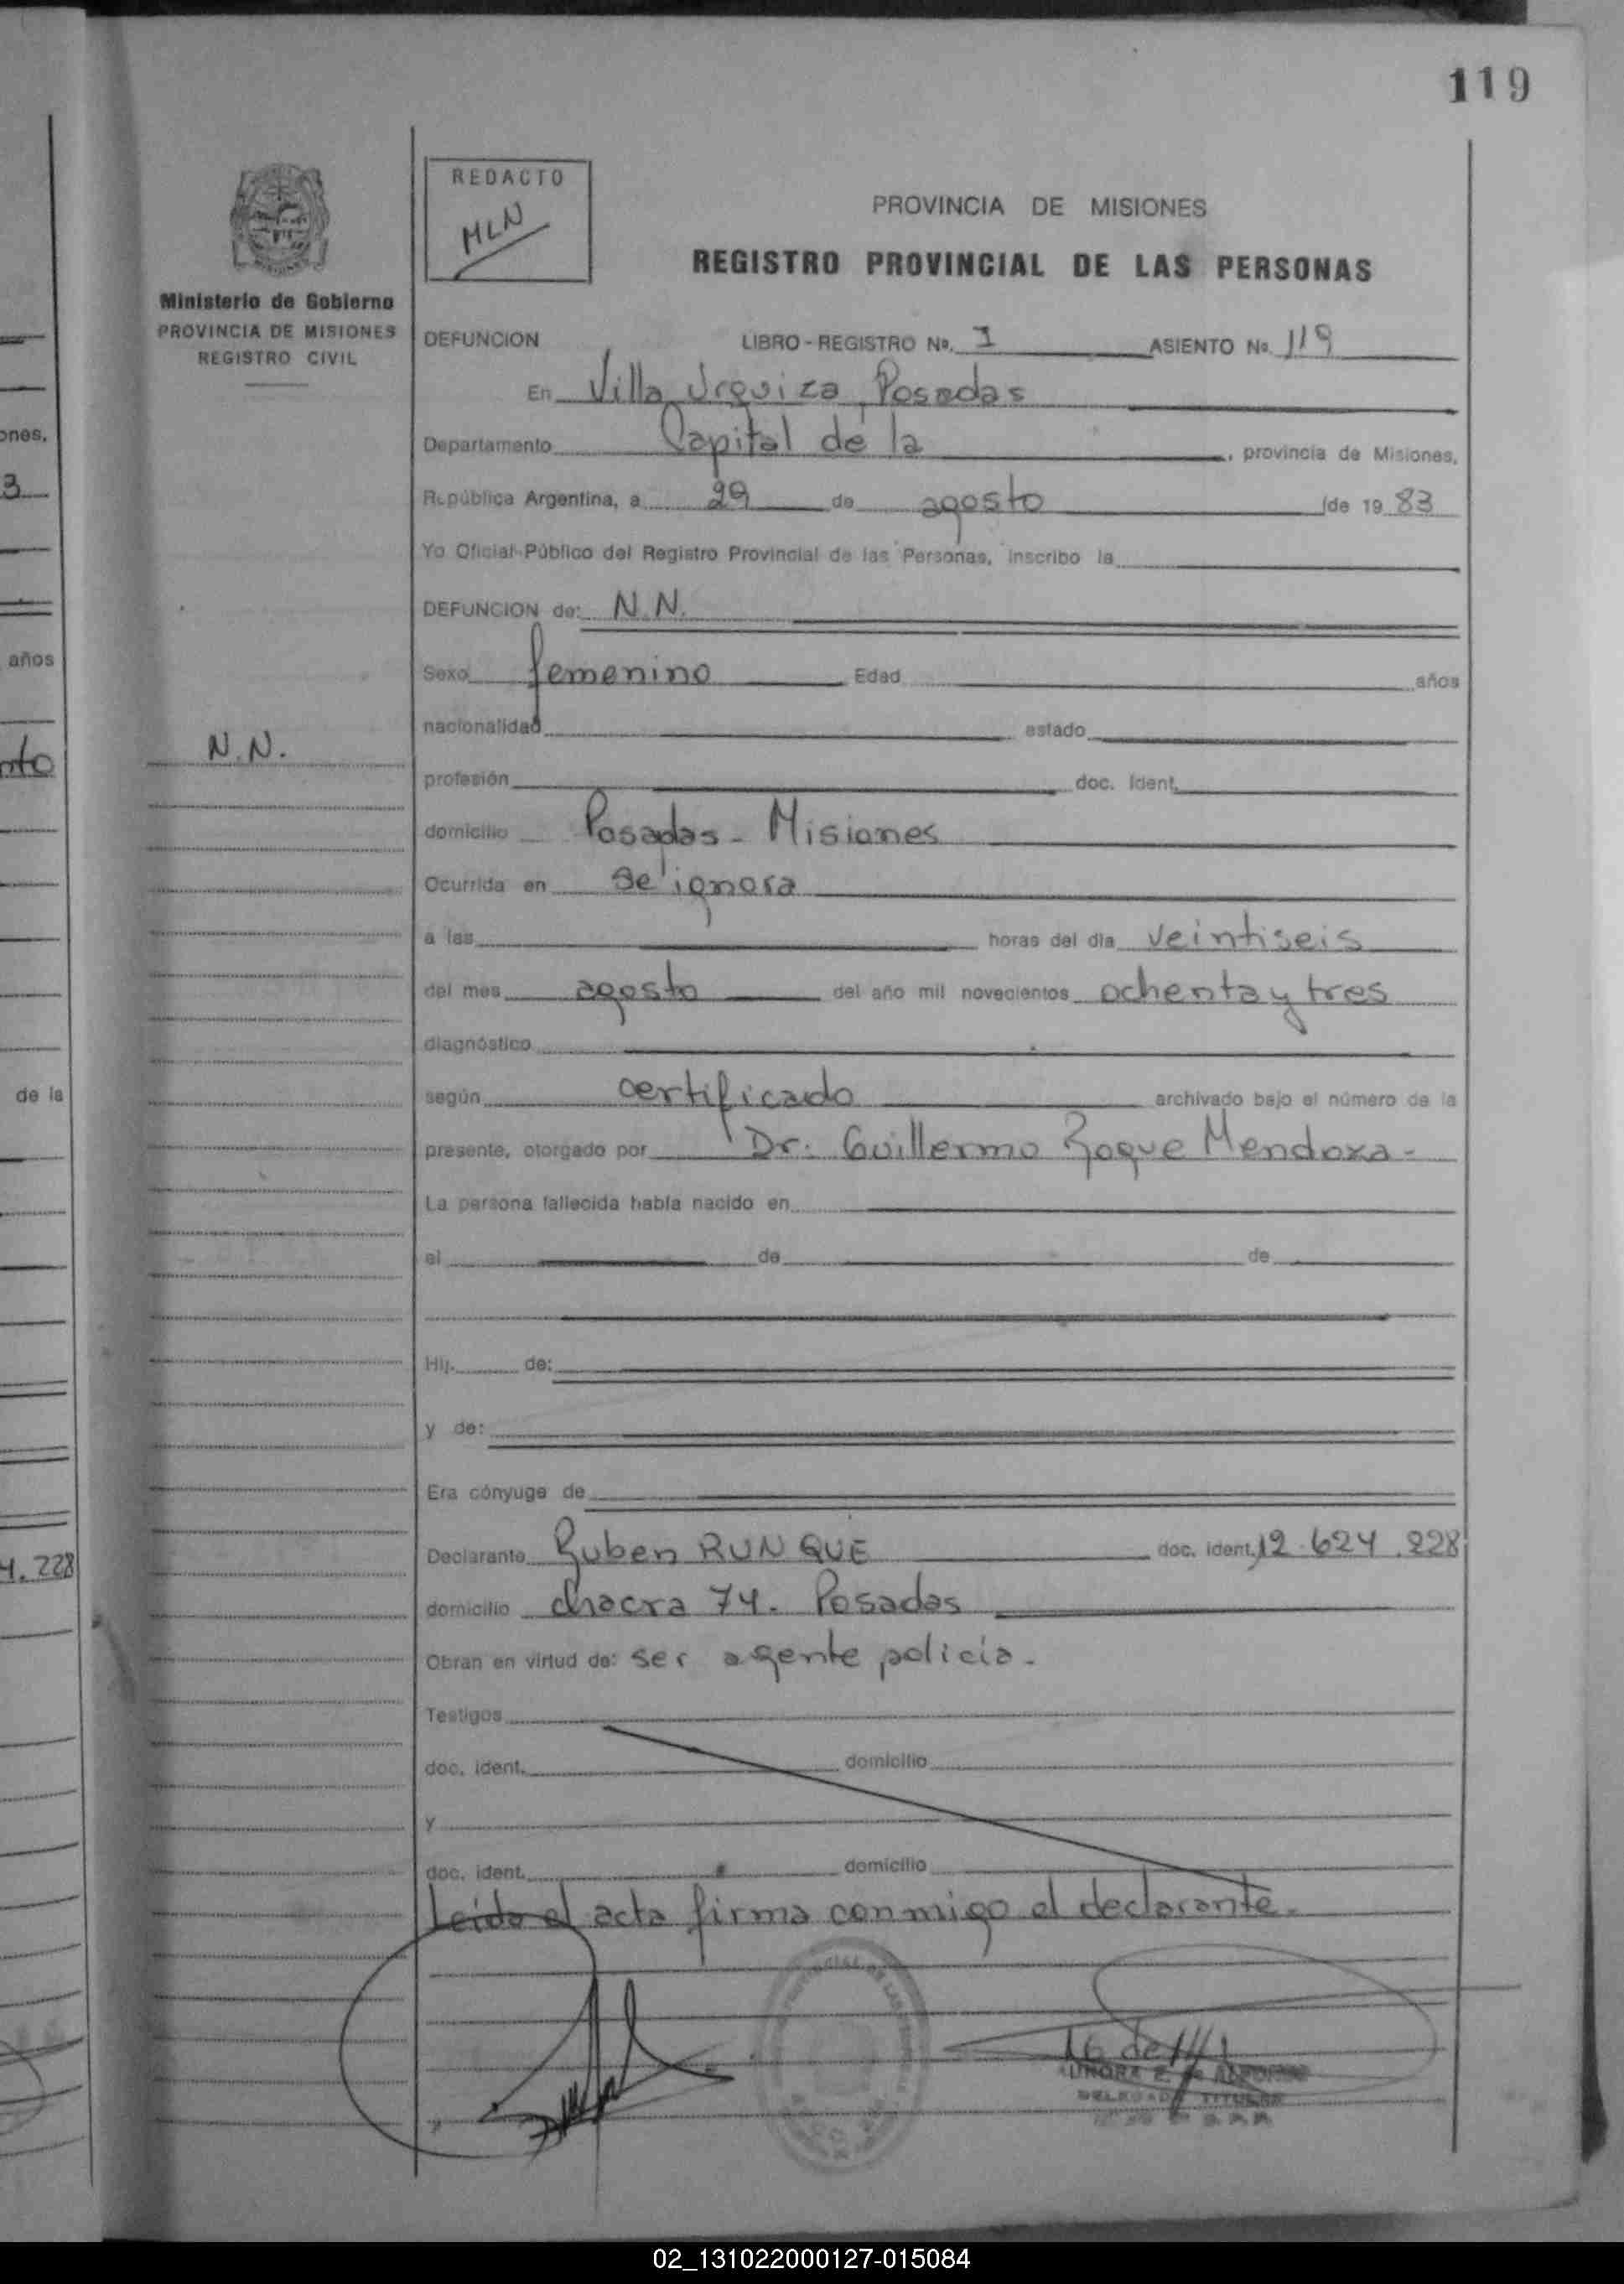 119
REDACTO
MLN
PROVINCIA DE MISIONES
REGISTRO PROVINCIAL DE LAS PERSONAS
Ministerio de Gobierno
PROVINCIA DE MISIONES
REGISTRO CIVIL
DEFUNCION LIBRO - REGISTRO No. I ASIENTO No. 119
En Villa Urquiza, Posadas
Departamento Capital de la , provincia de Misiones,
República Argentina, a 29 de agosto de 19 83
Yo Oficial Público del Registro Provincial de las Personas, inscribo la
DEFUNCION de: N.N.
Sexo femenino Edad años
nacionalidad estado
N.N.
profesión doc. Ident.
domicilio Posadas - Misiones
Ocurrida en se ignora
a las horas del día veintiseis
del mes agosto del año mil novecientos ochenta y tres
diagnóstico
según certificado archivado bajo el número de la
presente, otorgado por Dr. Guillermo Roque Mendoza -
La persona fallecida había nacido en
el de de
Hij de:
y de:
Era cónyuge de
Declarante Ruben RUNQUE doc. ident. 12.624.228
domicilio chacra 74. Posadas
Obran en virtud de: ser agente policia.
Testigos
doc. ident. domicilio
y
doc. ident. domicilio
Leída el acta firma conmigo el declarante.
DELEGADA TITULAR
ones,
3
años
nto
de la
4.228
02_131022000127-015084